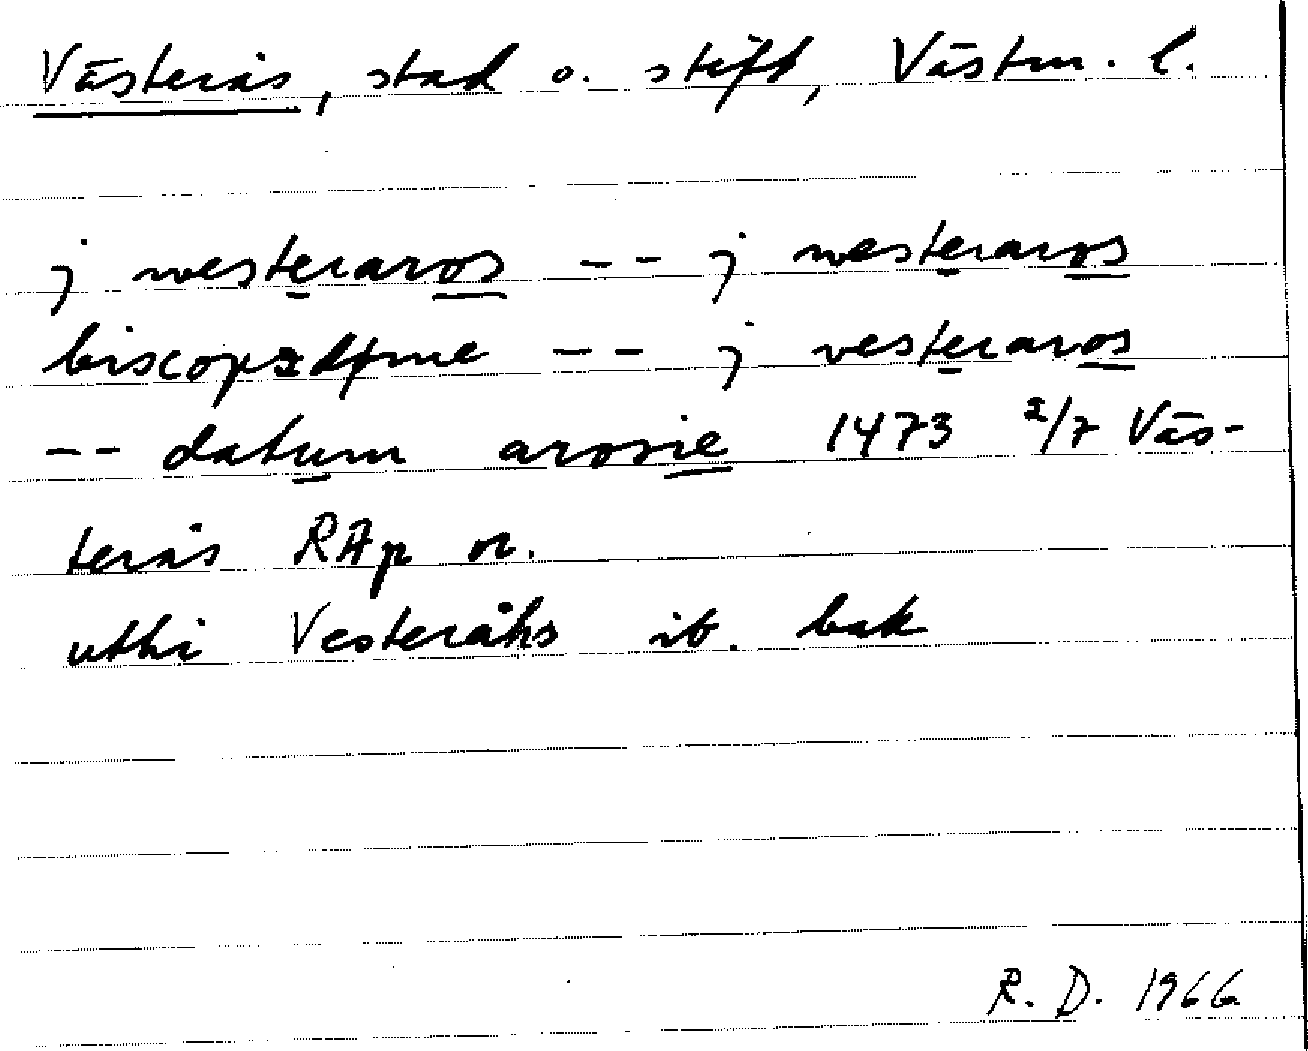 Västerås, stad o. stift, Västm. l.
j westeraros -- j westeraros
biscopzdøme -- j vesteraros
-- datum arosie 1473 2/7 Väs-
terås RAp or.
uthi Vesteråhs ib. bak
R. D. 1966